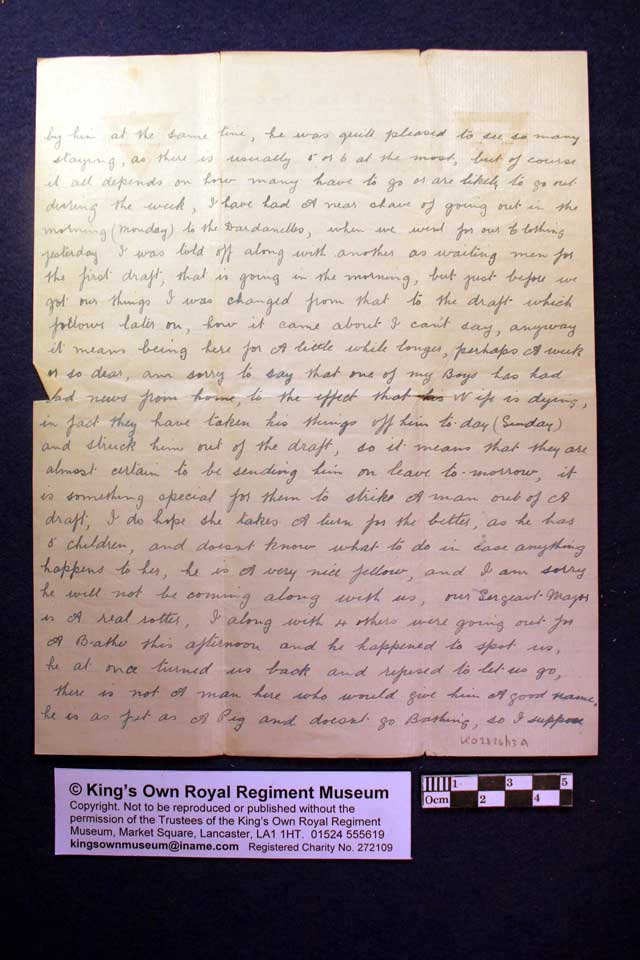 by him at the same time, he was quite pleased to see so many
staying, as there is usually 5 or 6 at the most, but of course
it all depends on how many have to go or are likely to go out
during the week, I have had A near shave of going out in the
morning (Monday) to the Dardanelles, when we went for our Clothing
yesterday I was told off along with another as waiting men for
the first draft, that is going in the morning, but just before we
got our things I was changed from that to the draft which
follows later on, how it came about I can't say, anyway
it means being here for A little while longer, perhaps A week
or so dear, am sorry to say that one of my Boys has had
bad news from home, to the effect that his Wife is dying,
in fact they have taken his things off him to-day (Sunday)
and struck him out of the draft, so it means that they are
almost certain to be sending him on leave to-morrow, it
is something special for them to strike A man out of A
draft, I do hope she takes A turn for the better, as he has
5 children, and doesnt know what to do in case anything
happens to her, he is A very nice fellow, and I am sorry
he will not be coming along with us, our Sergeant-Major
is A real rotter, I along with 4 others were going out for
A Bathe this afternoon and he happened to spot us,
he at once turned us back and refused to let us go,
there is not A man here who would give him A good name,
he is as fat as A Pig and doesnt go Bathing, so I suppose
KO2826/13A
© King's Own Royal Regiment Museum
Copyright. Not to be reproduced or published without the
permission of the Trustees of the King's Own Royal Regiment
Museum, Market Square, Lancaster, LA1 1HT. 01524 555619
kingsownmuseum@iname.com Registered Charity No. 272109
1 3 5
0cm 2 4